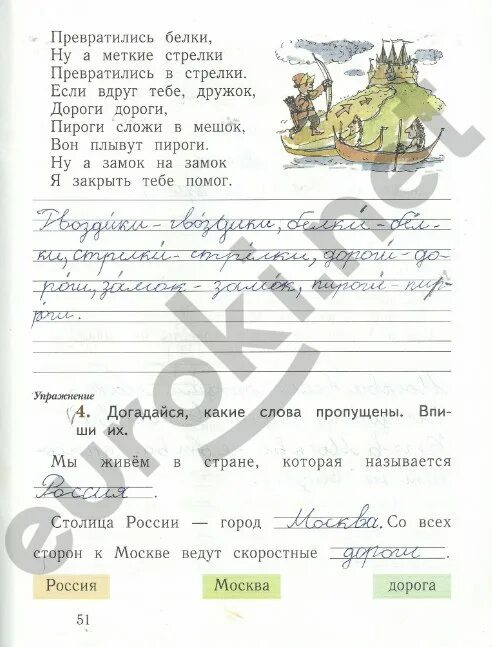 Превратились белки,
Ну а меткие стрелки
Превратились в стрелки.
Если вдруг тебе, дружок,
Дороги дороги,
Пироги сложи в мешок,
Вон плывут пироги.
Ну а замок на замок
Я закрыть тебе помог.
Гвозди́ки – гво́здики, белки́ – бе́л-
ки, стрелки́ – стре́лки, дороги́ – до-
ро́ги, за́мок – замо́к, пироги́ – пи-
ро́ги.
Упражнение
4. Догадайся, какие слова пропущены. Впи-
ши их.
Мы живём в стране, которая называется
Россия.
Столица России — город Москва. Со всех
сторон к Москве ведут скоростные дороги.
Россия Москва дорога
51
euroki.net